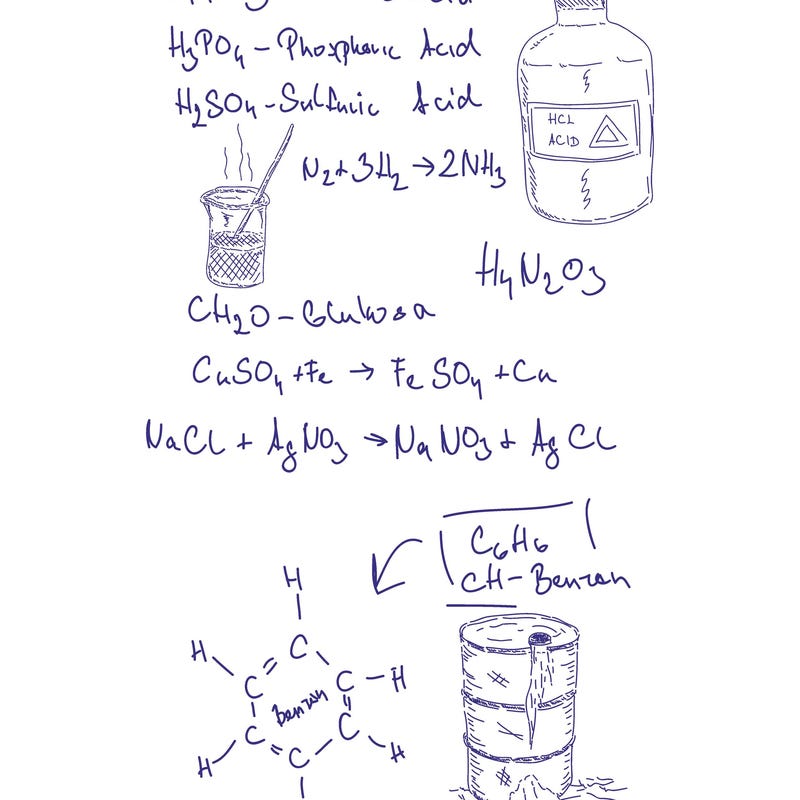 H₃PO₄ – Phosphoric Acid
H₂SO₄ – Sulfuric Acid
HCL
ACID
N₂ + 3H₂ → 2NH₃
H₄N₂O₃
CH₂O – Glukosa
CuSO₄ + Fe → FeSO₄ + Cu
NaCl + AgNO₃ → NaNO₃ + AgCl
C₆H₆
CH – Benzen
H
H C
C C – H
Benzen
C C
H C H